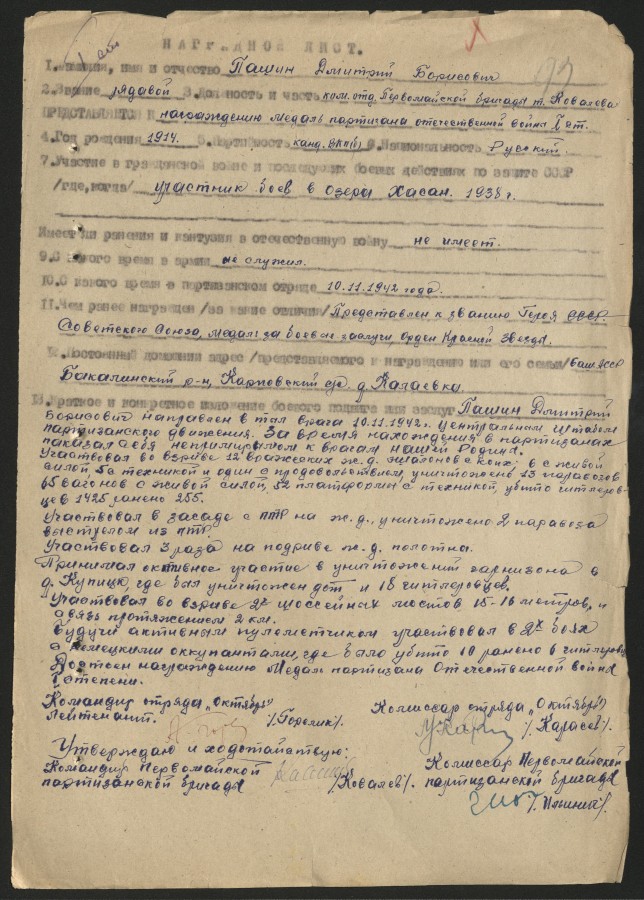 НАГРАДНОЙ ЛИСТ.
1. Фамилия, имя и отчество Пашин Дмитрий Борисович
2. Звание рядовой 3. Должность и часть ком. отд. Первомайской бригады т. Ковалева
ПРЕДСТАВЛЯЕТСЯ К награждению Медаль партизана отечественной войны I ст.
4. Год рождения 1914. 5. Партийность канд. ВКП(б) 6. Национальность Русский.
7. Участие в гражданской войне и последующих боевых действиях по защите СССР
/где, когда/ участник боев в Озера Хасан. 1938 г.
Имеет ли ранения и контузия в отечественную войну не имеет.
9. С какого время в армии не служил.
10. С какого время в партизанском отряде 10.11.1942 года.
11. Чем ранее награжден /за какие отличия/ Представлен к званию Героя СССР.
Советского Союза, медаль за боевые заслуги, орден Красной Звезды.
12. Постоянный домашний адрес /представляемого к награждению или его семьи/ Баш АССР
Бакалинский р-н, Карповский с/с д. Катаевка.
13. Краткое и конкретное изложение боевого подвига или заслуг Пашин Дмитрий
Борисович направлен в тыл врага 10.11.1942 г. центральным штабом
партизанского движения. За время нахождения в партизанах
показал себя непримиримом к врагам нашей Родины.
Участвовал во взрыве 12 вражеских ж.д. эшалонов с коих: 6 с живой
силой, 5 с техникой и один с продовольствием, уничтожено 13 паравозов
65 вагонов с живой силой, 52 платформы с техникой, убито гитлеров-
цев 1425 ранено 255.
Участвовал в засаде с ПТР на ж.д., уничтожено 2 паравоза
выстрелом из ПТР.
Участвовал 3 раза на подриве ж.д. полотна.
Принимал активное участие в уничтожений гарнизона в
д. Купицк, где был уничтожен дзт и 18 гитлеровцев.
Участвовал во взриве 2х шоссейных мостов 15-16 метров, и
связь протяжением 2 км.
Будучи активным пулеметчиком участвовал в 2х боях
с немецкими оккупантами, где было убито 10 ранено 6 гитлеровц.
Достоен награждению Медаль партизана Отечественной войны
I степени.
Командир отряда „Октябрь" Комиссар отряда „Октябрь"
Лейтенант. /Горелик/. /Карасев/.
Утверждаю и ходотайствую:
Командир Первомайской Комиссар Первомайской
партизанской бригады /Ковалев/. партизанской бригады